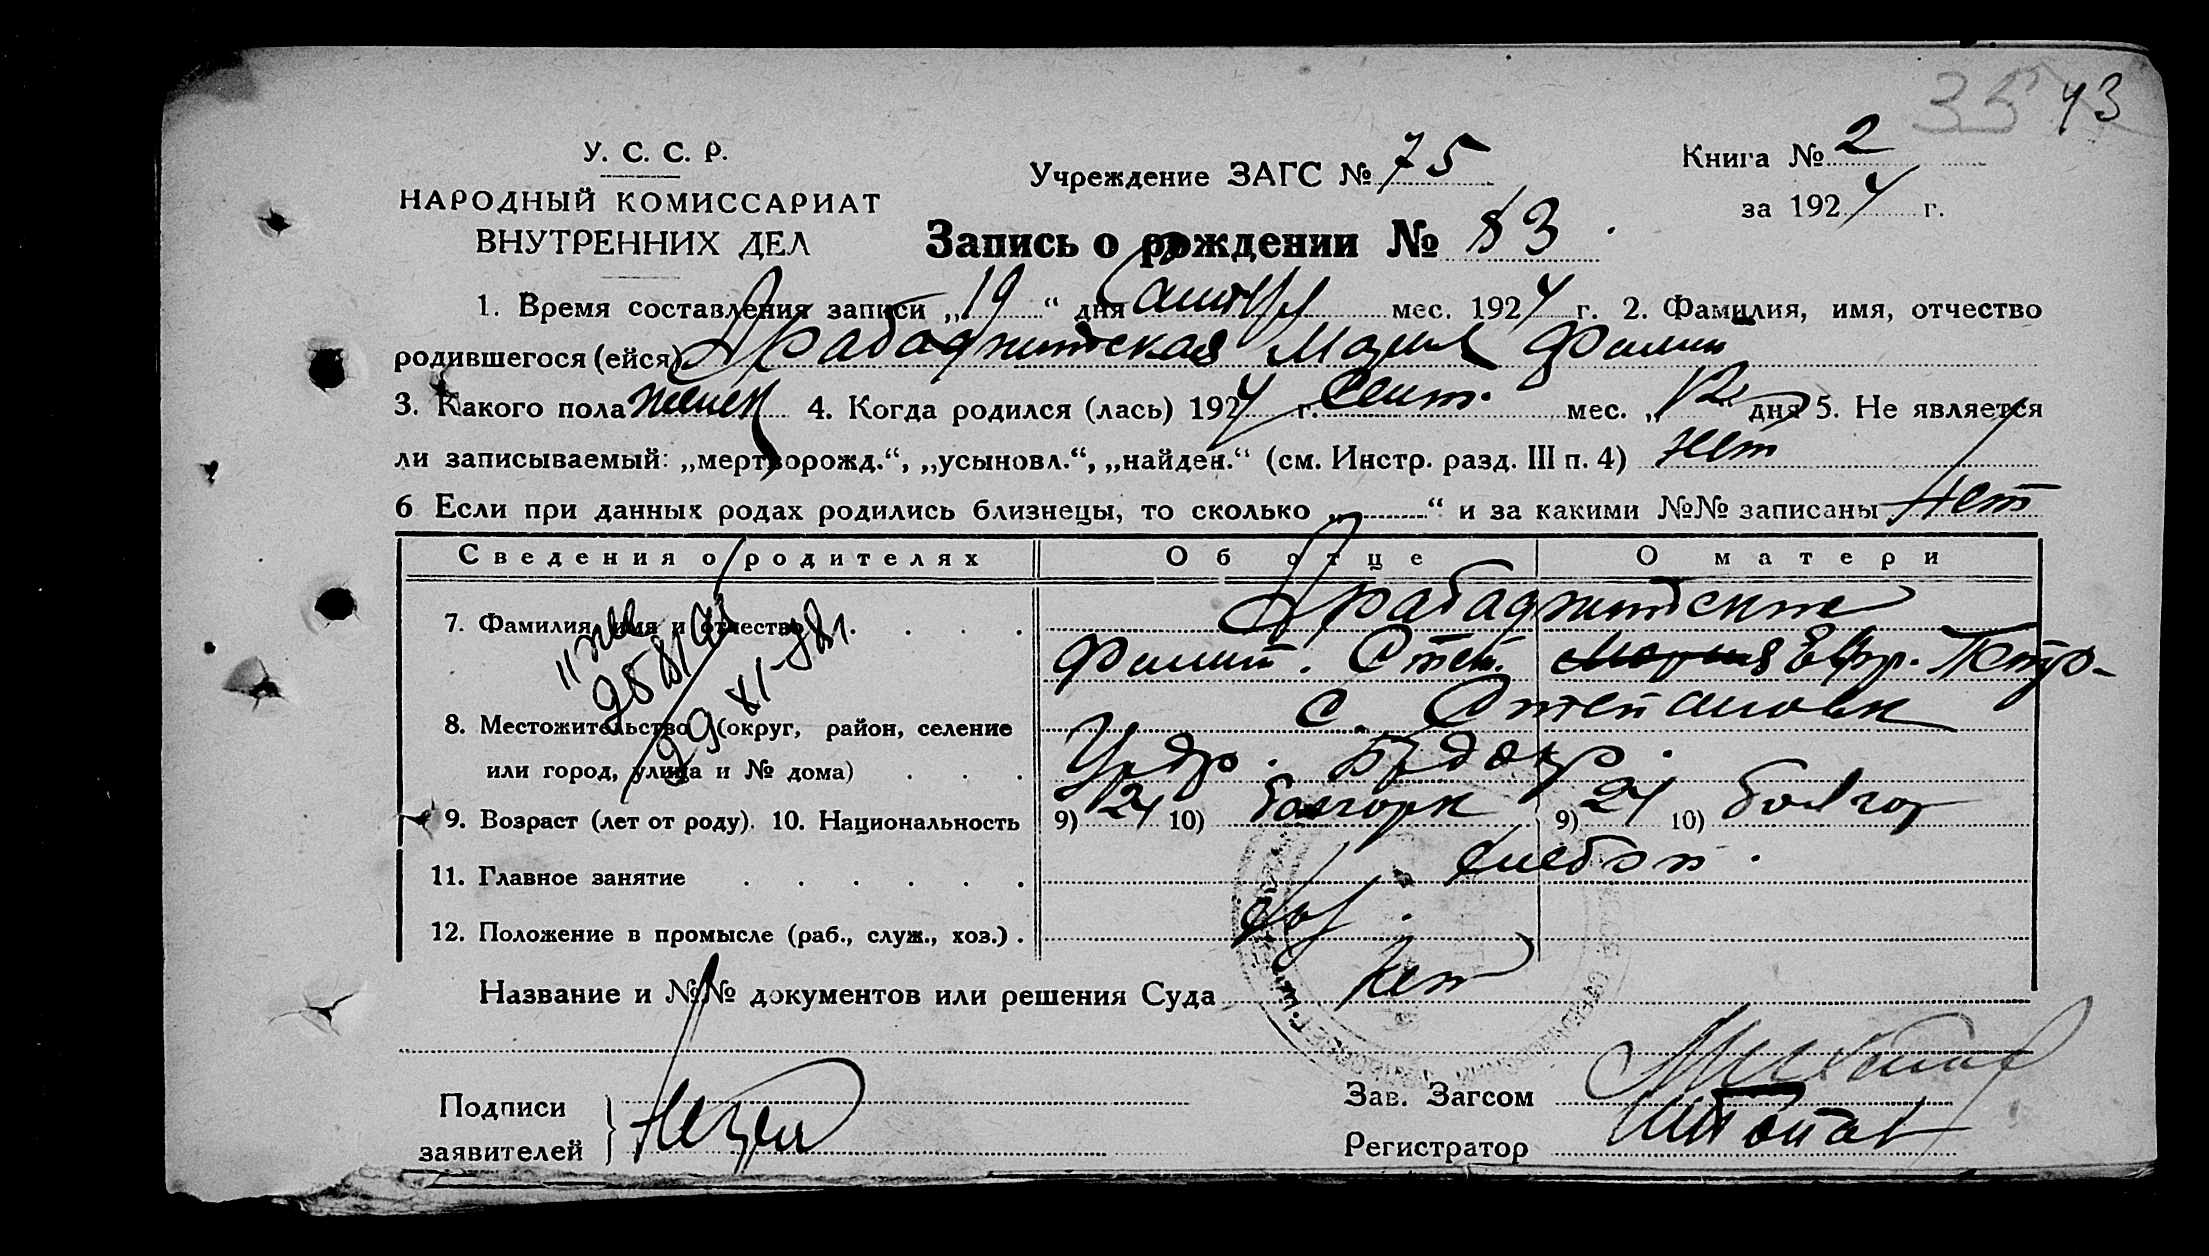 35 43
У. С. С. Р.
НАРОДНЫЙ КОМИССАРИАТ
ВНУТРЕННИХ ДЕЛ
Учреждение ЗАГС № 75
Книга № 2
за 1924 г.
Запись о рождении № 83
1. Время составления записи „19“ дня мес. 1924 г. 2. Фамилия, имя, отчество
родившегося (ейся) Арабаджийская Мария
3. Какого пола женск 4. Когда родился (лась) 1924 г. Сент. мес. „12“ дня 5. Не является
ли записываемый: „мертворожд.“, „усыновл.“, „найден.“ (см. Инстр. разд. III п. 4) нет
6 Если при данных родах родились близнецы, то сколько „ “ и за какими №№ записаны нет
Сведения о родителях Об отце О матери
7. Фамилия, имя и отчество . . . . Арабаджийские
Филип. Степ. Мария Евдр. Петро-
8. Местожительство (округ, район, селение с. Степановк
или город, улица и № дома) . . .
9. Возраст (лет от роду). 10. Национальность 9) 24 10) болгорк 9) 24 10) болгор
11. Главное занятие . . . . . . хлебоп.
12. Положение в промысле (раб., служ., хоз.) .
Название и №№ документов или решения Суда нет
Подписи
заявителей
Зав. Загсом
Регистратор